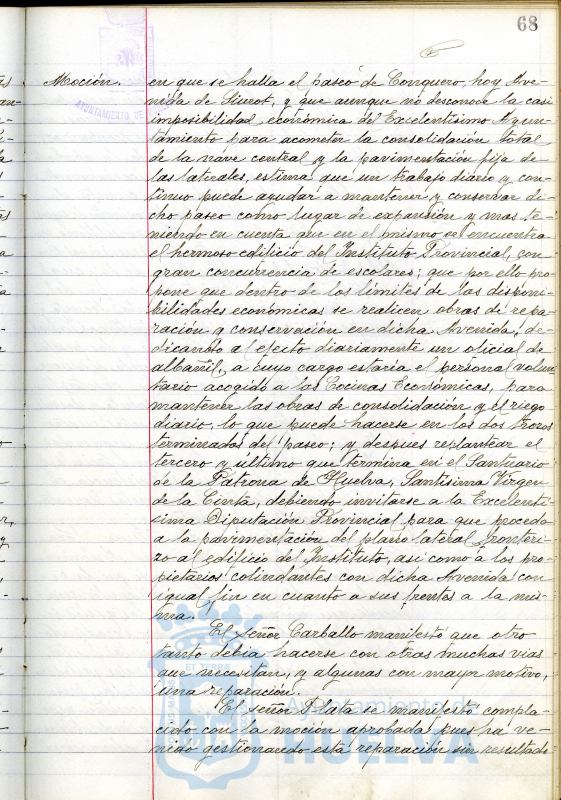 68
Moción. en que se halla el paseo de Conquero hoy Ave-
nida de Siurot, y que aunque no desconoce la casi
imposibilidad económica del Excelentísimo Ayun-
tamiento para acometer la consolidación total
de la nave central y la pavimentación fija de
las laterales, estima que un trabajo diario y con-
tinuo puede ayudar a mantener y conservar di-
cho paseo como lugar de expansión y mas te-
niendo en cuenta que en el mismo se encuentra
el hermoso edificio del Instituto Provincial, con
gran concurrencia de escolares; que por ello pro-
pone que dentro de los límites de las disponi-
bilidades economicas se realicen obras de repa-
ración y conservación en dicha Avenida, de-
dicando al efecto diariamente un oficial de
albañil, a cuyo cargo estaria el personal volun-
tario acogido a las Cocinas Económicas, para
mantener las obras de consolidación y el riego
diario, lo que puede hacerse en los dos trozos
terminados del paseo; y despues replantear el
tercero y último que termina en el Santuario
de la Patrona de Huelva, Santísima Virgen
de la Cinta, debiendo invitarse a la Excelentí-
sima Diputación Provincial para que proceda
a la pavimentación del plano lateral fronteri-
zo al edificio del Instituto, así como á los pro-
pietarios colindantes con dicha Avenida con
igual fin en cuanto a sus frentes a la mis-
ma.
El señor Carballo manifestó que otro
tanto debia hacerse con otras muchas vias
que necesitan, y algunas con mayor motivo,
una reparación.
El señor Plata se manifestó compla-
cido con la moción aprobada pues ha ve-
nido gestionando esta reparación sin resultado
AYUNTAMIENTO DE
Ayuntamiento de
HUELVA